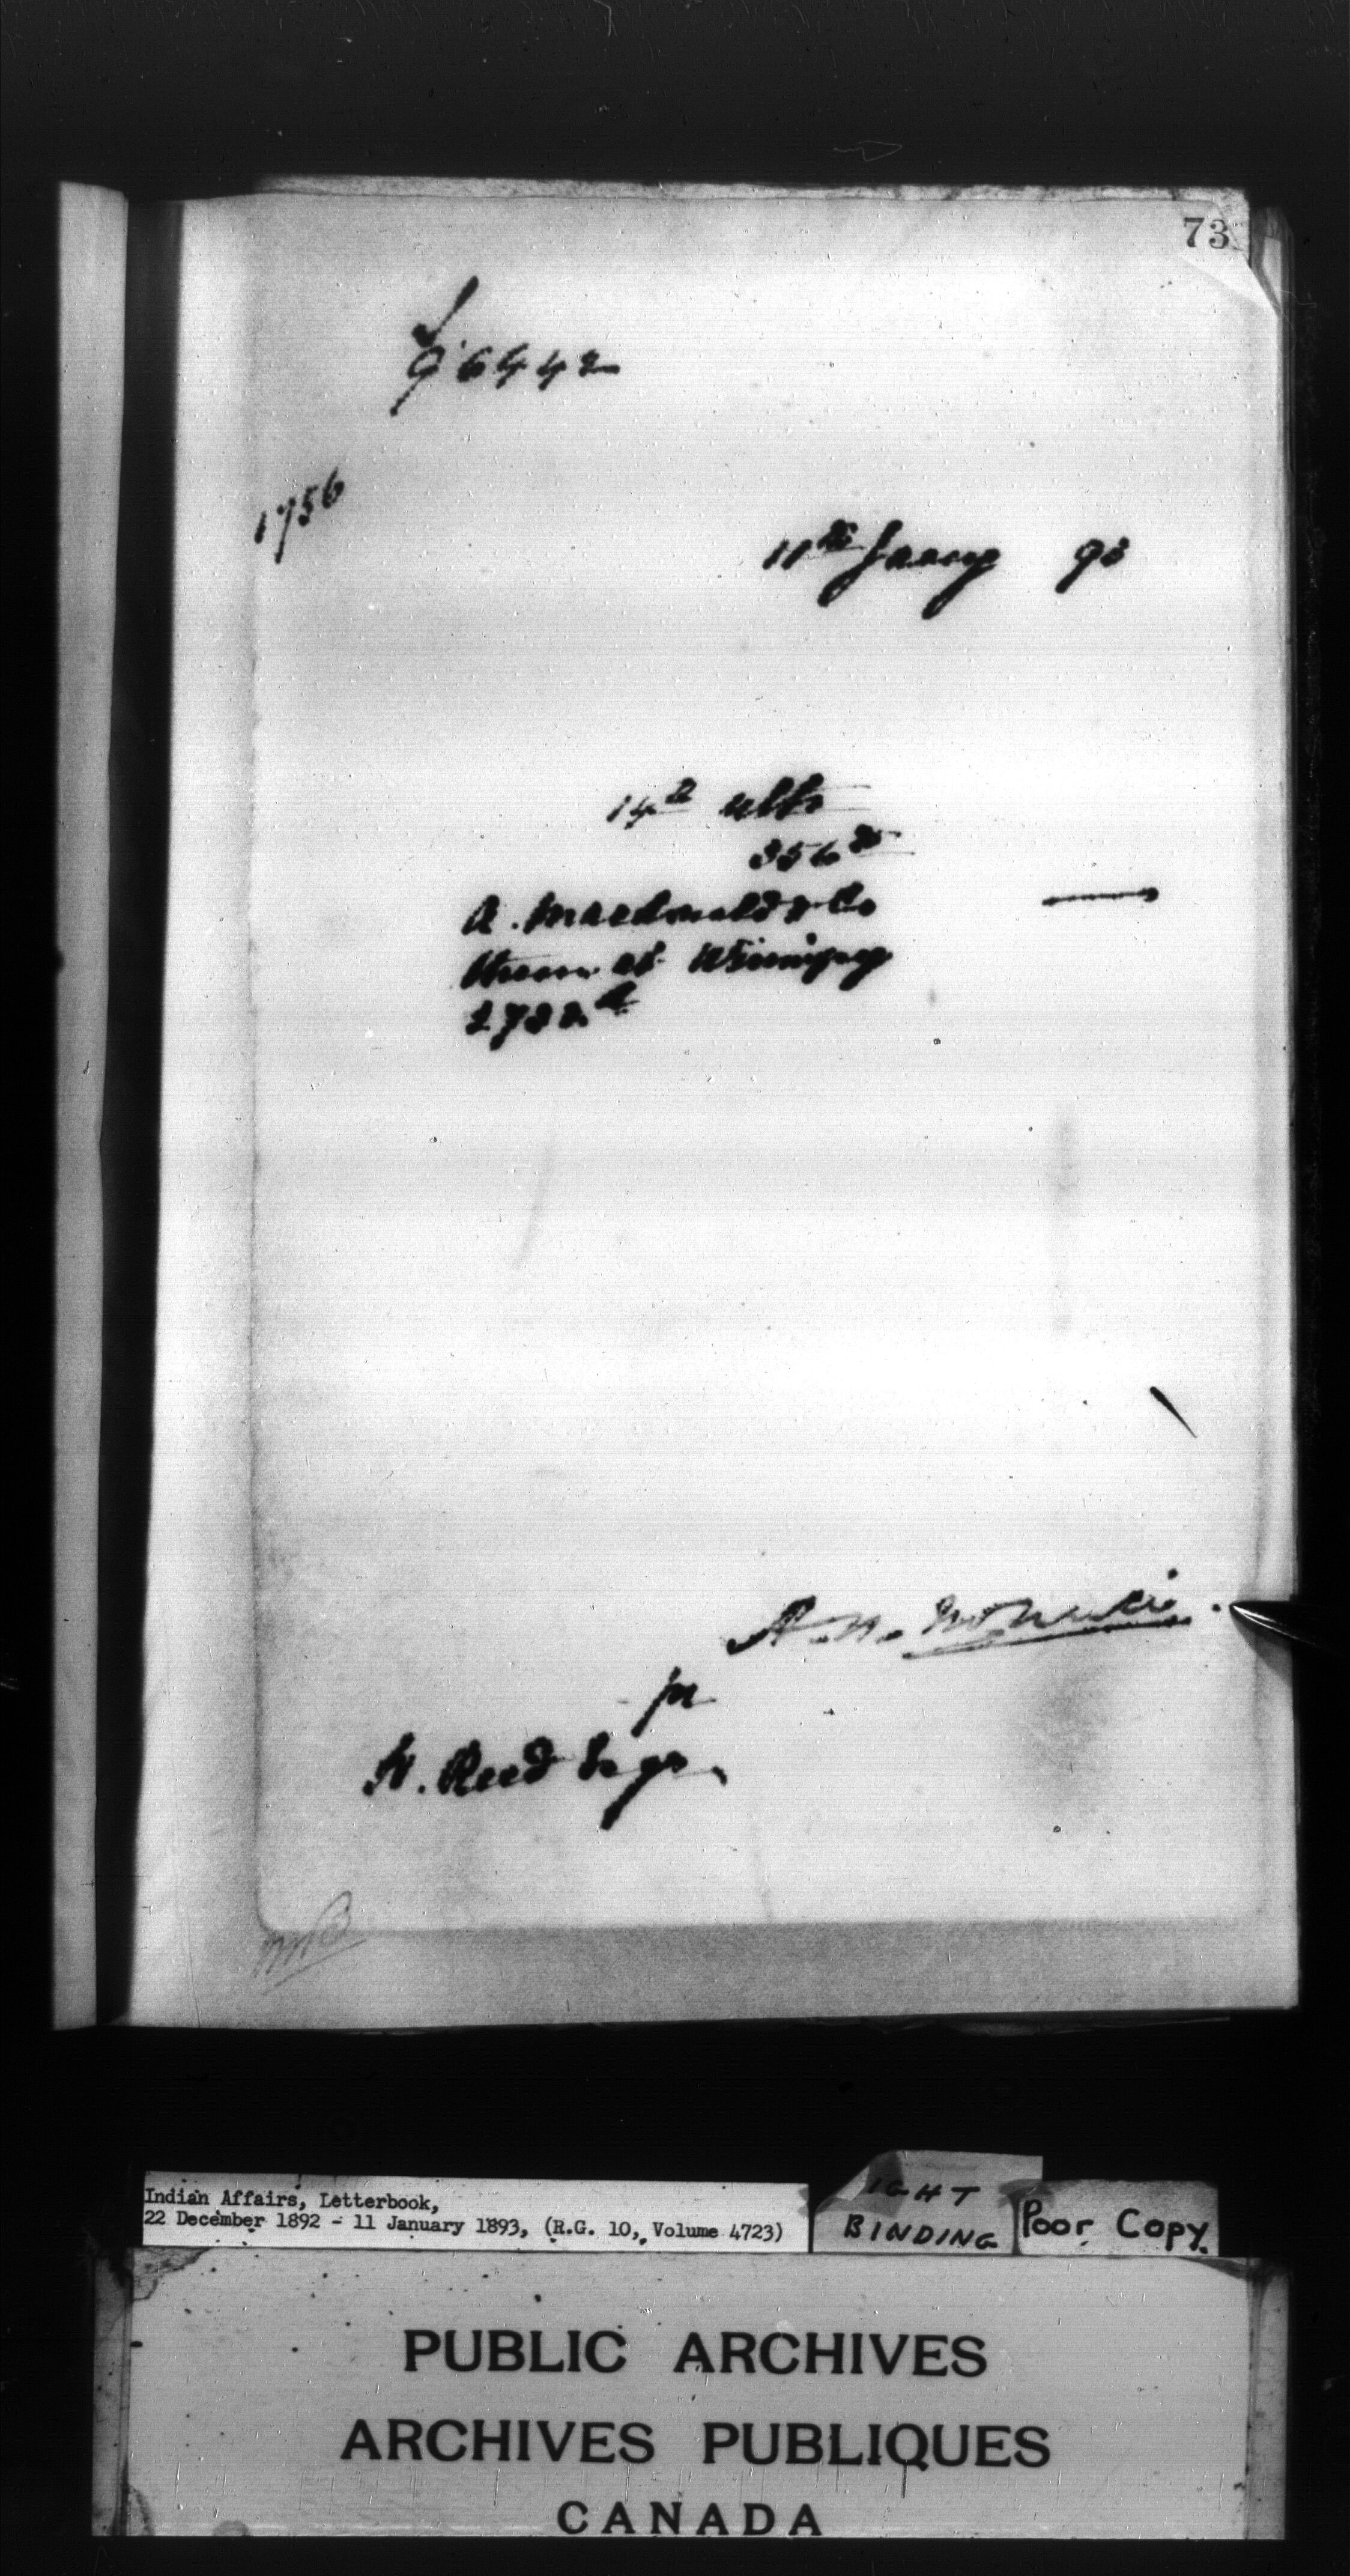 73
96442
1756
11th Jany 93
14th ulto
356
A. Macdonald & Co
at Winnipeg
pr
H. Reed Esqr.
Indian Affairs, Letterbook,
22 December 1892 - 11 January 1893, (R.G. 10, Volume 4723)
IGHT
BINDING
Poor Copy.
PUBLIC ARCHIVES
ARCHIVES PUBLIQUES
CANADA